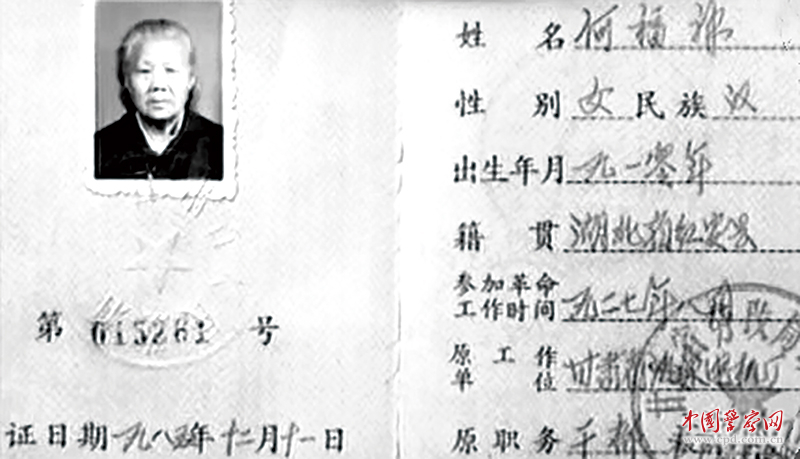 第 013261 号
证日期 一九八五年十二月十一日
姓名 何福祥
性别 女 民族 汉
出生年月 一九一零年
籍贯 湖北省红安县
参加革命工作时间 一九二七年八月
原工作单位 甘肃
原职务 干部
中国警察网
www.cpd.com.cn